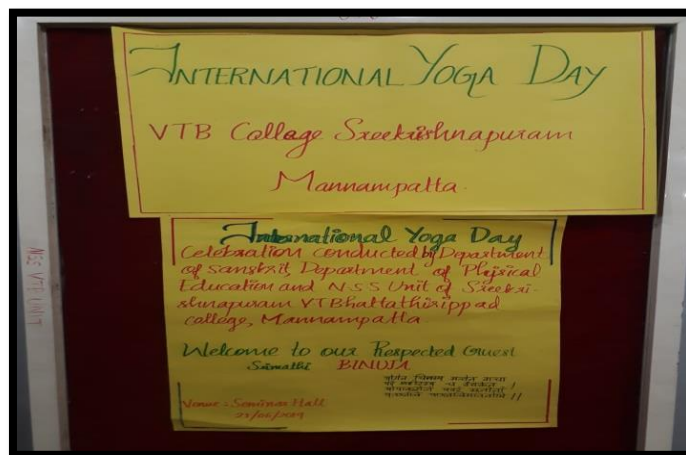 INTERNATIONAL YOGA DAY
VTB Collage Sreekrishnapuram
Mannampatta.
International Yoga Day
Celebration conducted by Department
of Sanskrit, Department of Physical
Education and NSS Unit of Sreekri-
shnapuram VTBhattathirippad
college, Mannampatta
Welcome to our Respected Guest
BINUJA
Venue: Seminar Hall
NSS VTB UNIT